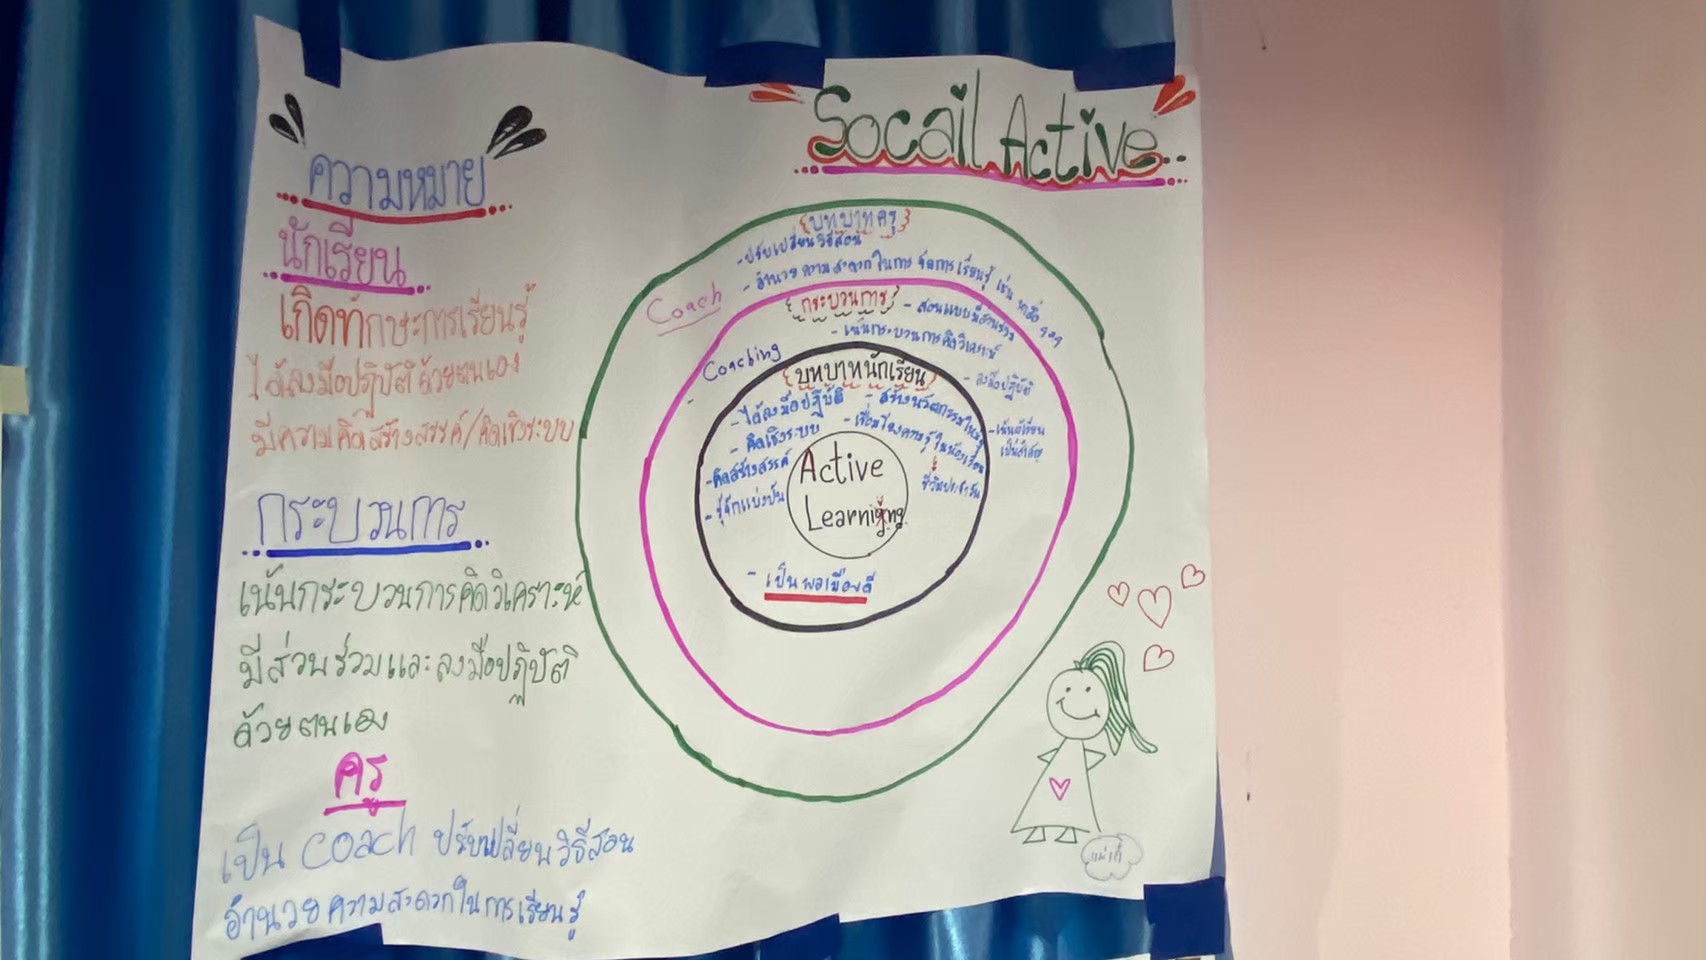 Socail Active
ความหมาย
นักเรียน
เกิดทักษะการเรียนรู้
ได้ลงมือปฏิบัติด้วยตนเอง
มีความคิดสร้างสรรค์/คิดเชิงระบบ
กระบวนการ
เน้นกระบวนการคิดวิเคราะห์
มีส่วนร่วมและลงมือปฏิบัติ
ด้วยตนเอง
ครู
เป็น coach ปรับเปลี่ยนวิธีสอน
อำนวยความสะดวกในการเรียนรู้
{บทบาทครู}
-ปรับเปลี่ยนวิธีสอน
- อำนวยความสะดวกในการจัดการเรียนรู้ เช่น
Coach
{กระบวนการ}
- สอนแบบมีส่วนร่วม
- เน้นกระบวนการคิดวิเคราะห์
- ลงมือปฏิบัติ
- เน้นผู้เรียน
เป็นสำคัญ
Coaching
{บทบาทนักเรียน}
- ได้ลงมือปฏิบัติ
- คิดเชิงระบบ
-คิดสร้างสรรค์
- รู้จักแบ่งปัน
- สร้างนวัตกรรมใหม่
- เชื่อมโยงความรู้ในห้องเรียน
ชีวิตประจำวัน
Active
- เป็นพลเมืองดี